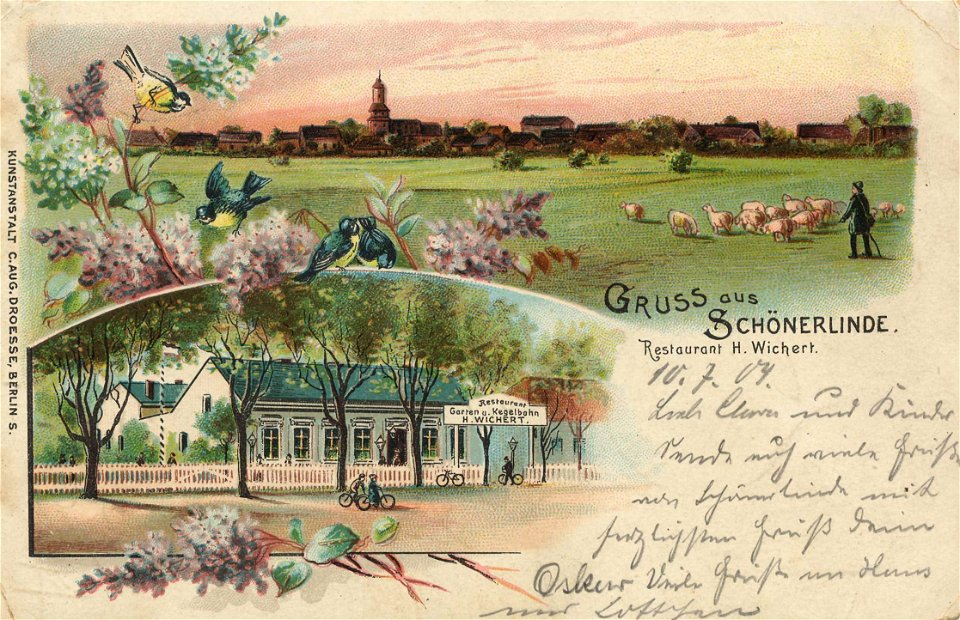 KUNSTANSTALT C. AUG. DROESSE, BERLIN S.
GRUSS aus
SCHÖNERLINDE.
Restaurant H. Wichert.
Restaurant
Garten u. Kegelbahn
H. WICHERT.
10. 7. 04
Liebe und Kinder
Sende euch viele Grüße
von Schönerlinde mit
herzlichsten Gruß Dein
Oskar Viele Grüße an Hans
und Lottchen